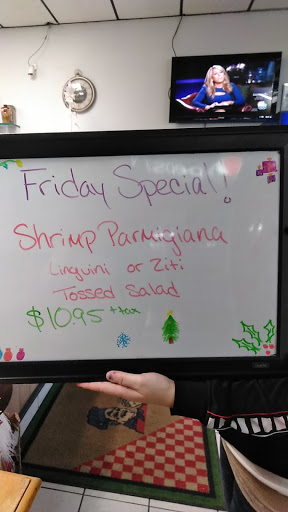 Friday Special!
Shrimp Parmigiana
Linguini or Ziti
Tossed Salad
$10.95 +tax